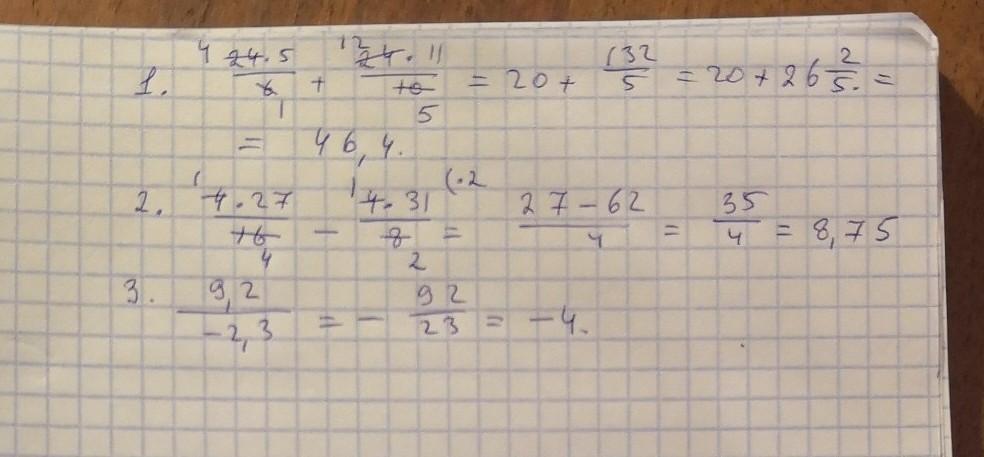 1. 24·5/6 + 24·11/10 = 20 + 132/5 = 20 + 26 2/5 =
= 46,4.
2. 4·27/16 - 4·31/8 (·2 = 27-62/4 = 35/4 = 8,75
3. 9,2/-2,3 = - 92/23 = -4.